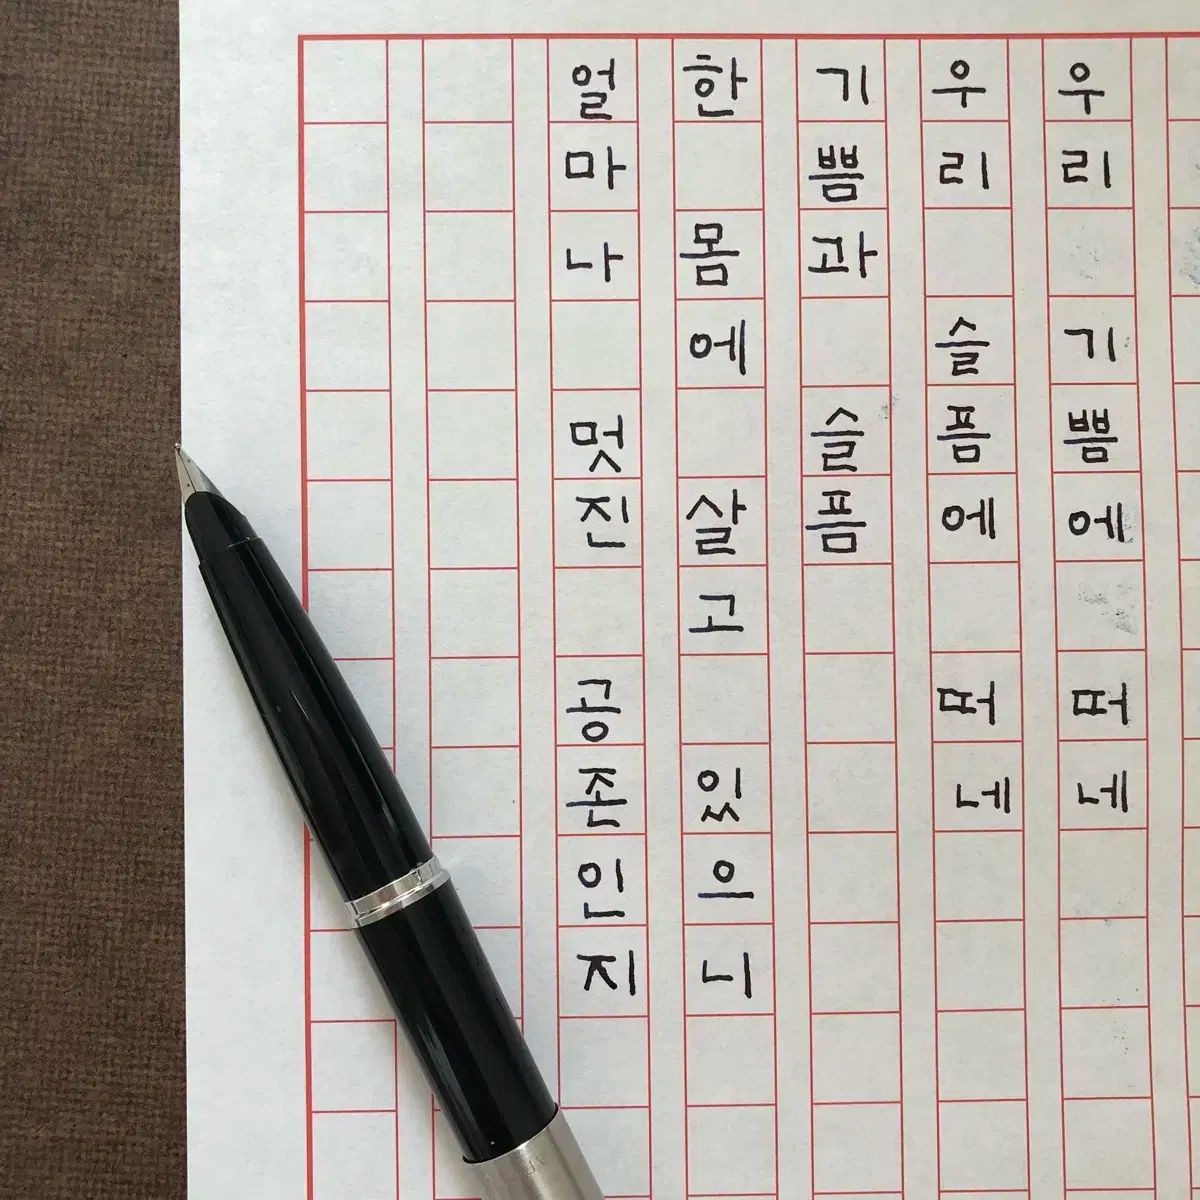 우리 기쁨에 머네
우리 슬픔에 머네
기쁨과 슬픔
한 몸에 살고 있으니
얼마나 멋진 공존인지